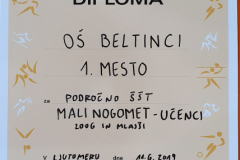 DIPLOMA
OŠ BELTINCI
1. MESTO
za PODROČNO ŠŠT
MALI NOGOMET - UČENCI
2006 IN MLAJŠI
V LJUTOMERU dne 11.6.2019